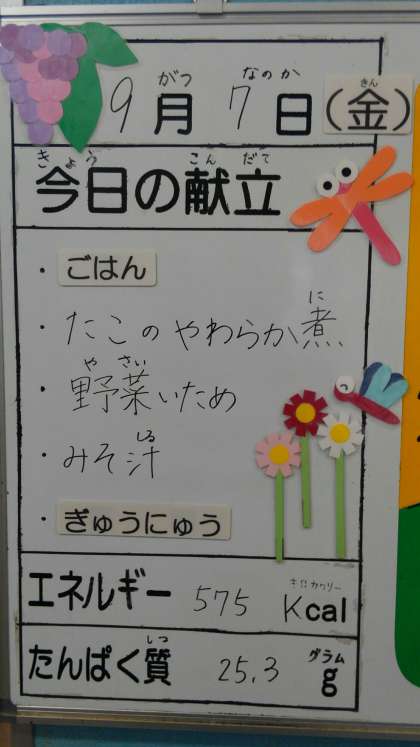 9月7日(金)
今日の献立
・ごはん
・たこのやわらか煮
・野菜いため
・みそ汁
・ぎゅうにゅう
エネルギー 575 Kcal
たんぱく質 25.3 g